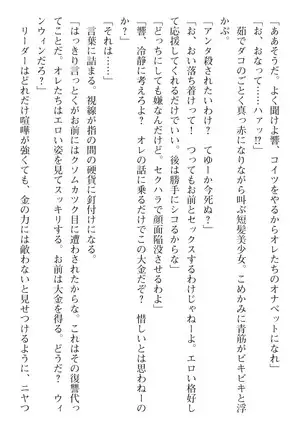 「ああそうだ。よく聞けよ響、コイツをやるからオレたちのオナペットになれ」
「お、おなって……ハァッ!?」
茹でダコのごとく真っ赤になりながら叫ぶ短髪美少女。こめかみに青筋がビキビキと浮
かぶ。
「アンタ殺されたいわけ？　てゆーか今死ぬ？」
「お、おい落ち着けって！　つってもお前とセックスするわけじゃねーよ。エロい格好し
て応援してくれるだけでいい。後は勝手にシコるからな」
「どっちにしても嫌なんだけど、セクハラで顔面陥没させるわよ」
「響、冷静に考えろよ？　オレの話に乗るだけでこの大金だぞ？　惜しいとは思わねーの
か？」
「それは……」
言葉に詰まる。視線が指の間の硬貨に釘付けになる。
「はっきり言うとオレたちはお前にクソムカツク目に遭わされたからな。これはその復讐代っ
てことだ。オレたちはエロい姿を見てスッキリする。お前は大金を得る。どうだ？　ウィ
ンウィンだろ？」
リーダーはどれだけ喧嘩が強くても、金の力には敵わないと見せつけるように、ニヤつ